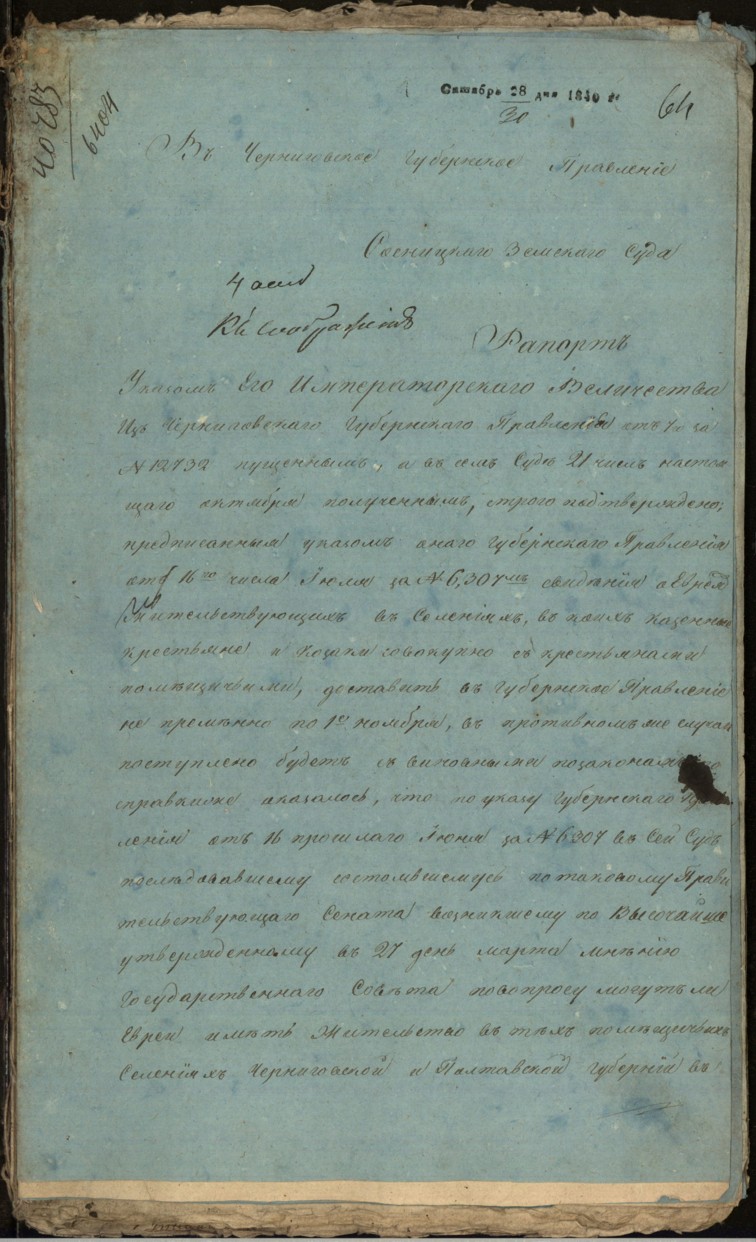 40283
6404
Октябрь 28 дня 1840 г
30
64
Въ Черниговское Губернское Правленіе
Сосницкаго Земскаго Суда
4
Къ соображенію
Рапортъ
Указомъ Его Императорскаго Величества
Изъ Черниговскаго Губернскаго Правленія отъ за
№ 12732 пущеннымъ, а въ семъ Судѣ 21 числъ настоя
щаго октября полученнымъ, строго подтверждено;
предписанныя указомъ онаго Губернскаго Правленія
отъ 16го числа Іюля за № 6,307мъ свѣдѣнія о Евреяхъ
жительствующихъ въ Селеніяхъ, въ коихъ казенные
крестьяне и козаки совокупно съ крестьянами
помѣщичьими, доставить въ Губернское Правленіе
не премѣнно по 1е ноября, въ противномъ же случаи
поступлено будетъ съ виновными позаконамъ, по
справкиже оказалось, что по указу Губернскаго Прав
ленія отъ 16 прошлаго Іюня за № 6307 въ Сей Судъ
послѣдовавшему состоявшемусь по таковому Прави
тельствующаго Сената возникшему по Высочайше
утвержденному въ 27 день марта мнѣнію
Государственнаго Совѣта повопросу могутъ ли
Евреи имѣть Жительство въ тѣхъ помѣщичьихъ
Селеніяхъ Черниговской и Полтавской Губерній въ